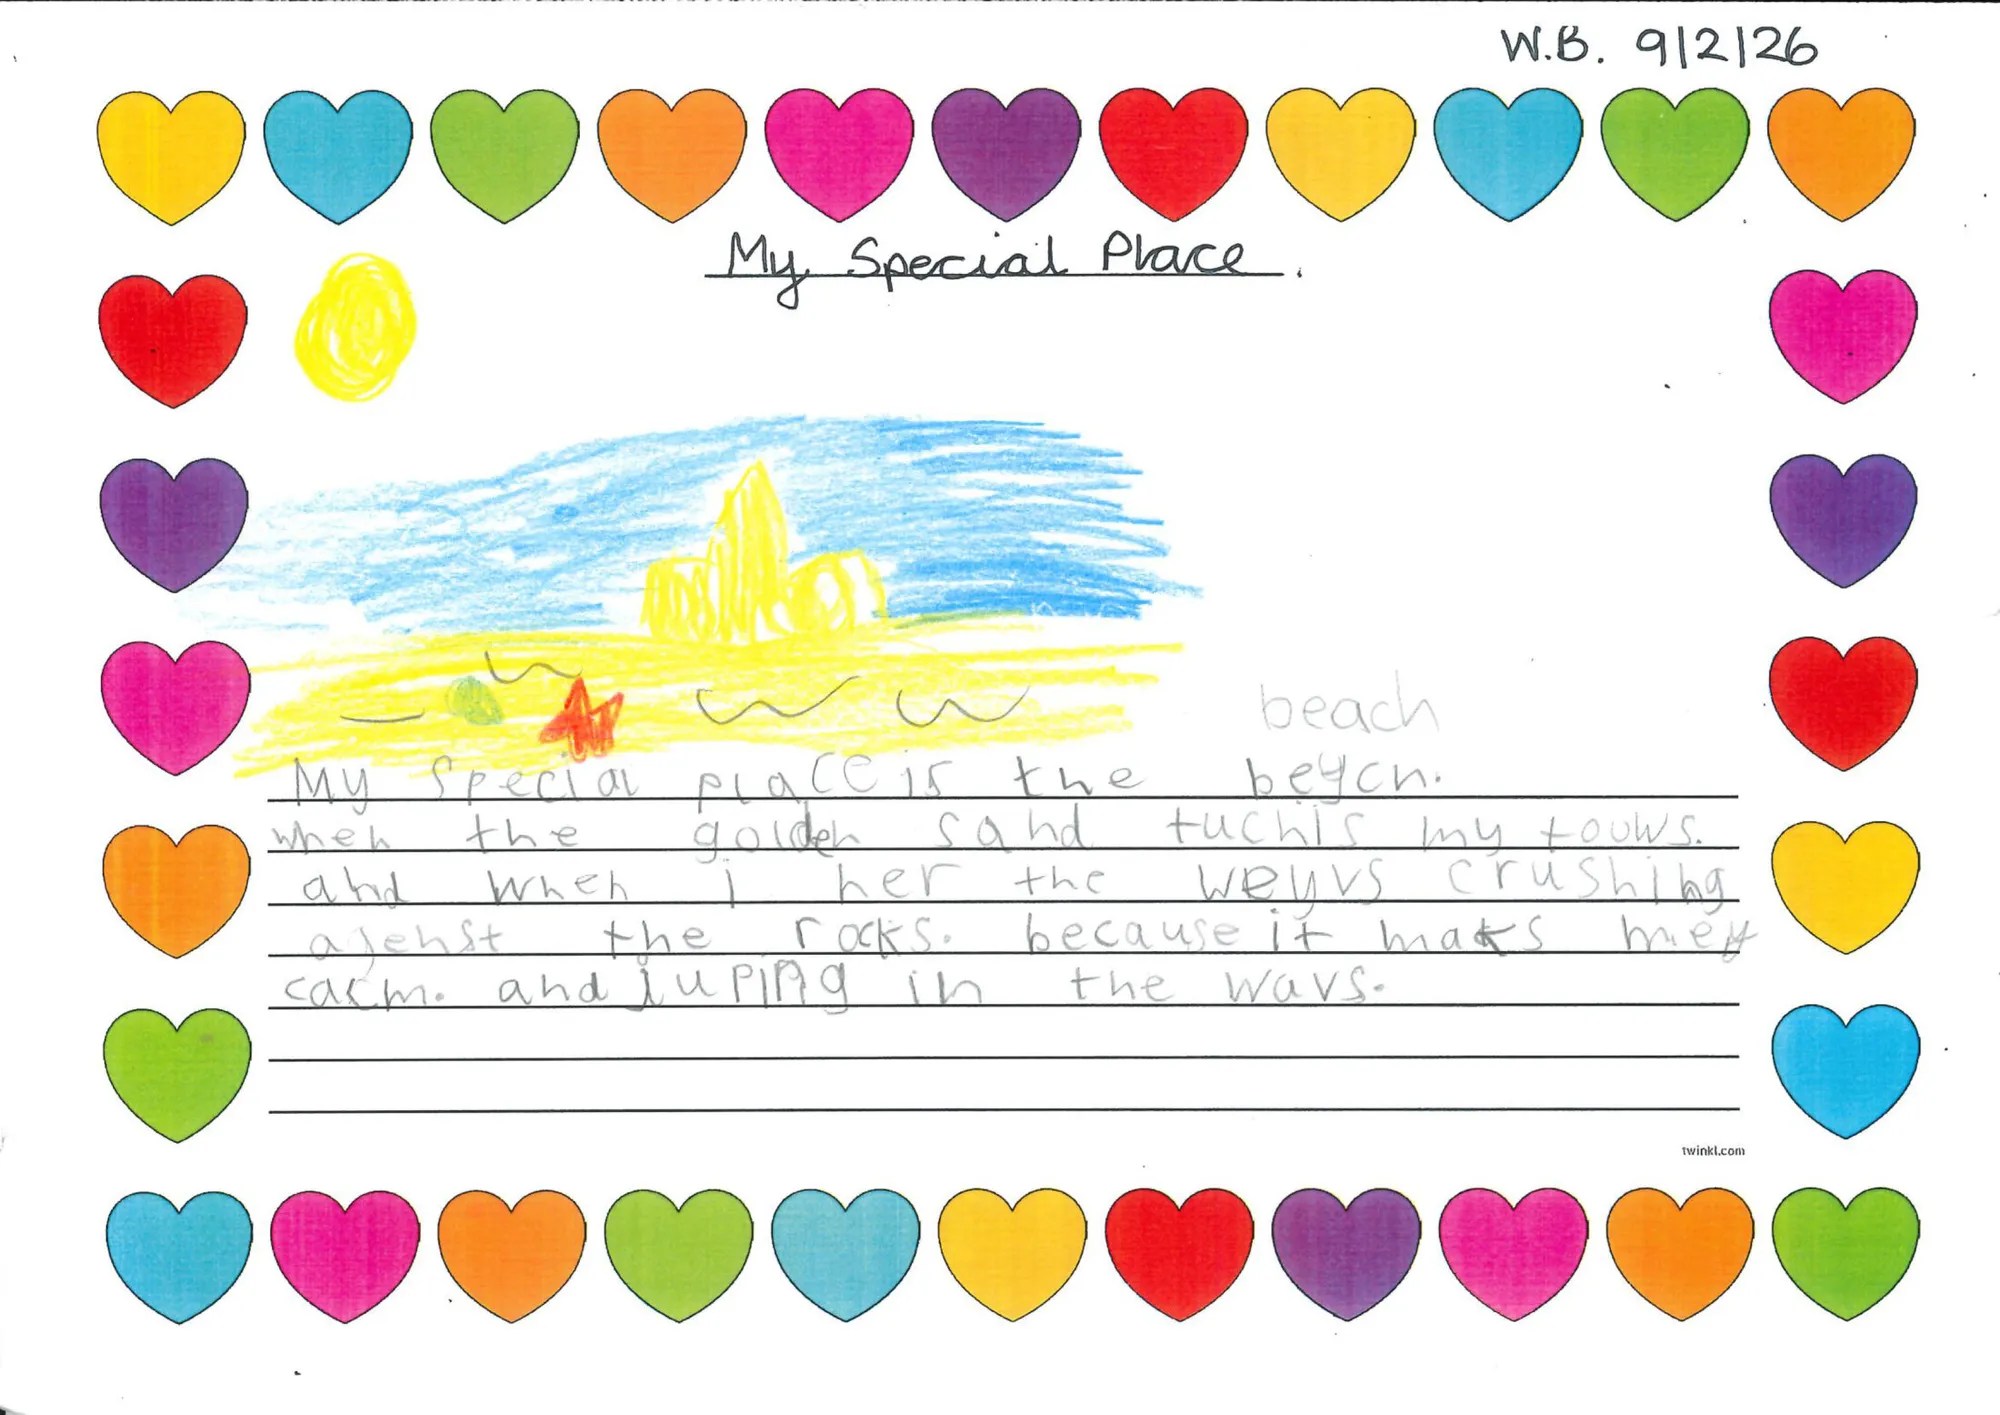 W.B. 9/2/26
My Special Place.
beach
My special place is the beych.
when the golden sand tuchis my touws.
and when i her the weyvs crushing
agenst the rocks. because it maks mey
cacm. and juping in the wavs.
twinkl.com